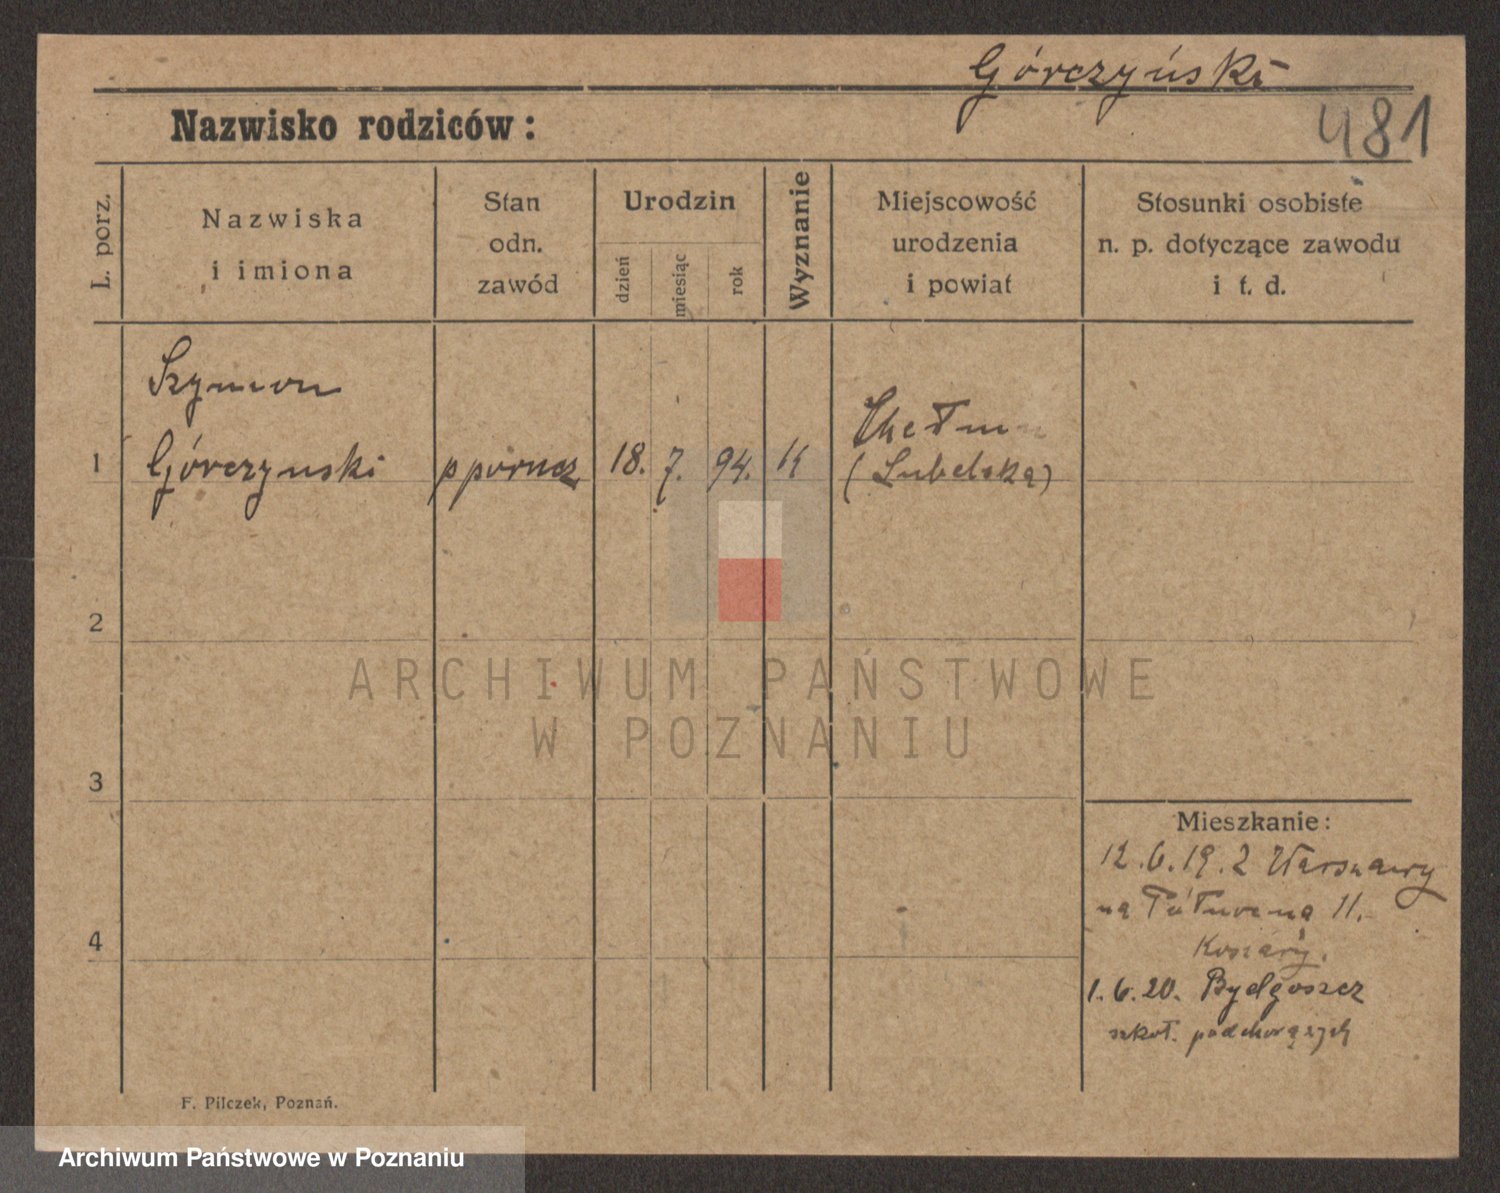 Górczyński
481
Nazwisko rodziców:
L. porz.
Nazwiska
i imiona
Stan
odn.
zawód
Urodzin
dzień
miesiąc
rok
Wyznanie
Miejscowość
urodzenia
i powiat
Stosunki osobiste
n. p. dotyczące zawodu
i t. d.
Szymon
1 Górczynski pporucz 18. 7. 94. K
Chełm
(Lubelska)
2
3
4
Mieszkanie:
12.6.19. z Warszawy
na 11.
Koszary.
1.6.20. Bydgoszcz
szkoł. podchorążych
F. Pilczek, Poznań.
ARCHIWUM PAŃSTWOWE
W POZNANIU
Archiwum Państwowe w Poznaniu